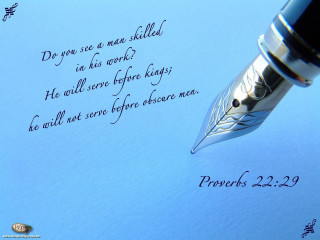 Do you see a man skilled
in his work?
He will serve before kings;
he will not serve before obscure men.
Proverbs 22:29